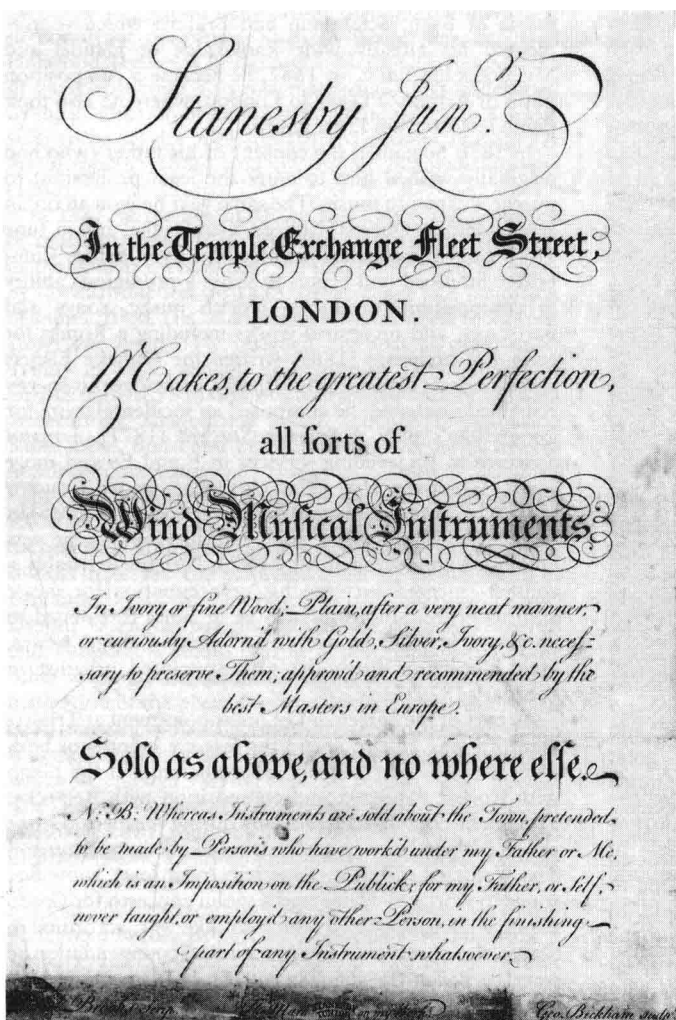 Stanesby Junr.
In the Temple Exchange Fleet Street,
LONDON.
Makes, to the greatest Perfection,
all sorts of
Wind Musical Instruments
In Ivory or fine Wood; Plain, after a very neat manner,
or curiously Adorn'd with Gold, Silver, Ivory, &c. neces=
sary to preserve Them; approv'd and recommended by the
best Masters in Europe.
Sold as above, and no where else.
N: B: Whereas Instruments are sold about the Town, pretended
to be made by Persons who have work'd under my Father or Me,
which is an Imposition on the Publick; for my Father, or Self,
never taught, or employ'd any other Person, in the finishing
part of any Instrument whatsoever.
Geo. Bickham sculp.